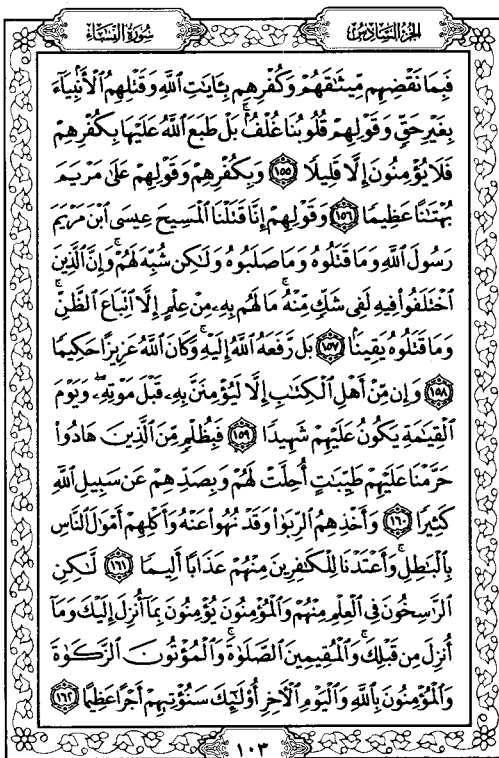 الجزء السادس
سورة النساء
فَبِمَا نَقْضِهِم مِّيثَٰقَهُمْ وَكُفْرِهِم بِـَٔايَٰتِ ٱللَّهِ وَقَتْلِهِمُ ٱلْأَنۢبِيَآءَ
بِغَيْرِ حَقٍّ وَقَوْلِهِمْ قُلُوبُنَا غُلْفٌۢ ۚ بَلْ طَبَعَ ٱللَّهُ عَلَيْهَا بِكُفْرِهِمْ
فَلَا يُؤْمِنُونَ إِلَّا قَلِيلًا ١٥٥ وَبِكُفْرِهِمْ وَقَوْلِهِمْ عَلَىٰ مَرْيَمَ
بُهْتَٰنًا عَظِيمًا ١٥٦ وَقَوْلِهِمْ إِنَّا قَتَلْنَا ٱلْمَسِيحَ عِيسَى ٱبْنَ مَرْيَمَ
رَسُولَ ٱللَّهِ وَمَا قَتَلُوهُ وَمَا صَلَبُوهُ وَلَٰكِن شُبِّهَ لَهُمْ ۚ وَإِنَّ ٱلَّذِينَ
ٱخْتَلَفُوا۟ فِيهِ لَفِى شَكٍّ مِّنْهُ ۚ مَا لَهُم بِهِۦ مِنْ عِلْمٍ إِلَّا ٱتِّبَاعَ ٱلظَّنِّ ۚ
وَمَا قَتَلُوهُ يَقِينًۢا ١٥٧ بَل رَّفَعَهُ ٱللَّهُ إِلَيْهِ ۚ وَكَانَ ٱللَّهُ عَزِيزًا حَكِيمًا
١٥٨ وَإِن مِّنْ أَهْلِ ٱلْكِتَٰبِ إِلَّا لَيُؤْمِنَنَّ بِهِۦ قَبْلَ مَوْتِهِۦ ۖ وَيَوْمَ
ٱلْقِيَٰمَةِ يَكُونُ عَلَيْهِمْ شَهِيدًا ١٥٩ فَبِظُلْمٍ مِّنَ ٱلَّذِينَ هَادُوا۟
حَرَّمْنَا عَلَيْهِمْ طَيِّبَٰتٍ أُحِلَّتْ لَهُمْ وَبِصَدِّهِمْ عَن سَبِيلِ ٱللَّهِ
كَثِيرًا ١٦٠ وَأَخْذِهِمُ ٱلرِّبَوٰا۟ وَقَدْ نُهُوا۟ عَنْهُ وَأَكْلِهِمْ أَمْوَٰلَ ٱلنَّاسِ
بِٱلْبَٰطِلِ ۚ وَأَعْتَدْنَا لِلْكَٰفِرِينَ مِنْهُمْ عَذَابًا أَلِيمًا ١٦١ لَّٰكِنِ
ٱلرَّٰسِخُونَ فِى ٱلْعِلْمِ مِنْهُمْ وَٱلْمُؤْمِنُونَ يُؤْمِنُونَ بِمَآ أُنزِلَ إِلَيْكَ وَمَآ
أُنزِلَ مِن قَبْلِكَ ۚ وَٱلْمُقِيمِينَ ٱلصَّلَوٰةَ ۚ وَٱلْمُؤْتُونَ ٱلزَّكَوٰةَ
وَٱلْمُؤْمِنُونَ بِٱللَّهِ وَٱلْيَوْمِ ٱلْءَاخِرِ أُو۟لَٰٓئِكَ سَنُؤْتِيهِمْ أَجْرًا عَظِيمًا ١٦٢
١٠٣